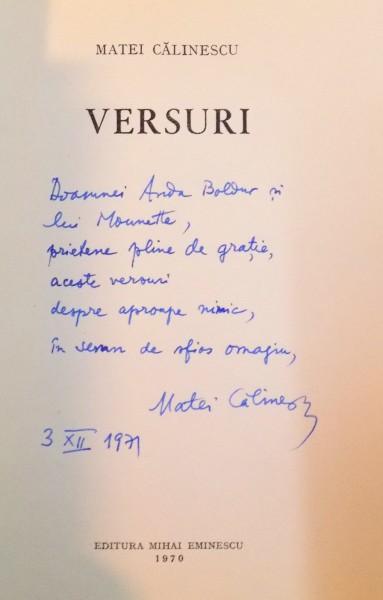 MATEI CĂLINESCU
VERSURI
Doamnei Anda Boldur și
lui Mounette,
prietene pline de grație,
aceste versuri
despre aproape nimic,
în semn de sfios omagiu,
Matei Călinescu
3 XII 1971
EDITURA MIHAI EMINESCU
1970